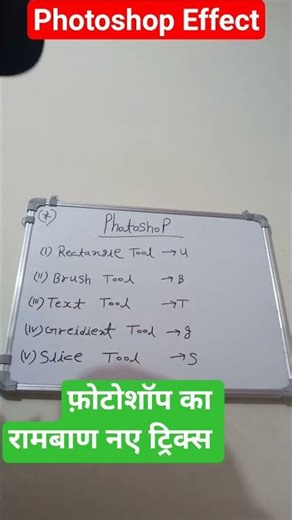 Photoshop Effect
*
PhatoshoP
(I) Rectangle Tool → U
(II) Brush Tool → B
(III) Text Tool → T
(IV) Greidient Tool → g
(V) Slice Tool → S
फ़ोटोशॉप का
रामबाण नए ट्रिक्स